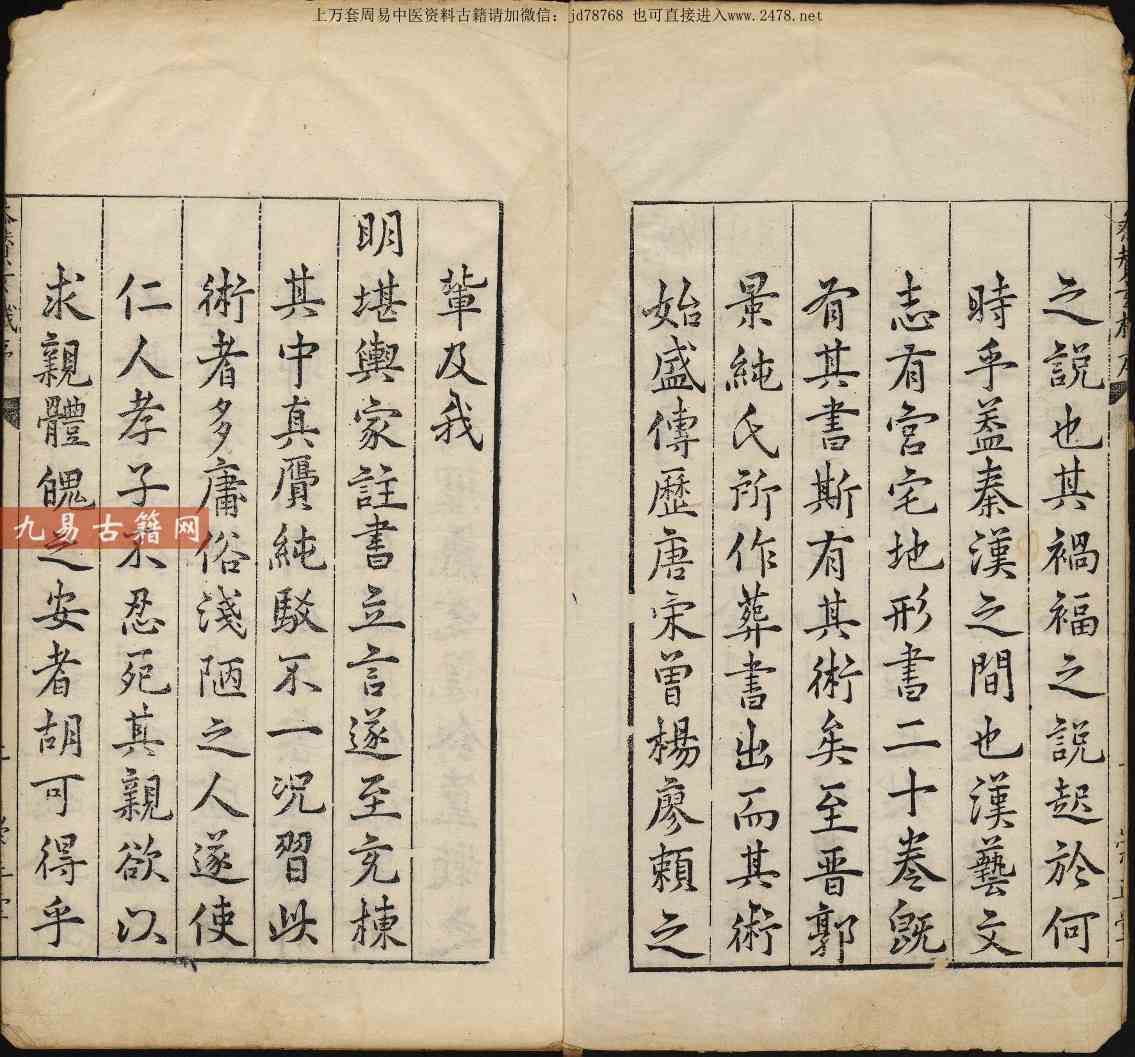 上万套周易中医资料古籍请加微信：jd78768 也可直接进入www.2478.net
之說也其禍福之說起於何
時乎葢秦漢之間也漢藝文
志有宮宅地形書二十卷旣
有其書斯有其術矣至晋郭
景純氏所作葬書出而其術
始盛傳歷唐宋曾楊廖賴之
輩及我
明堪輿家註書立言遂至充棟
其中真贋純駁不一况習此
術者多庸俗淺陋之人遂使
仁人孝子不忍死其親欲以
求親體魄之安者胡可得乎
九易古籍网